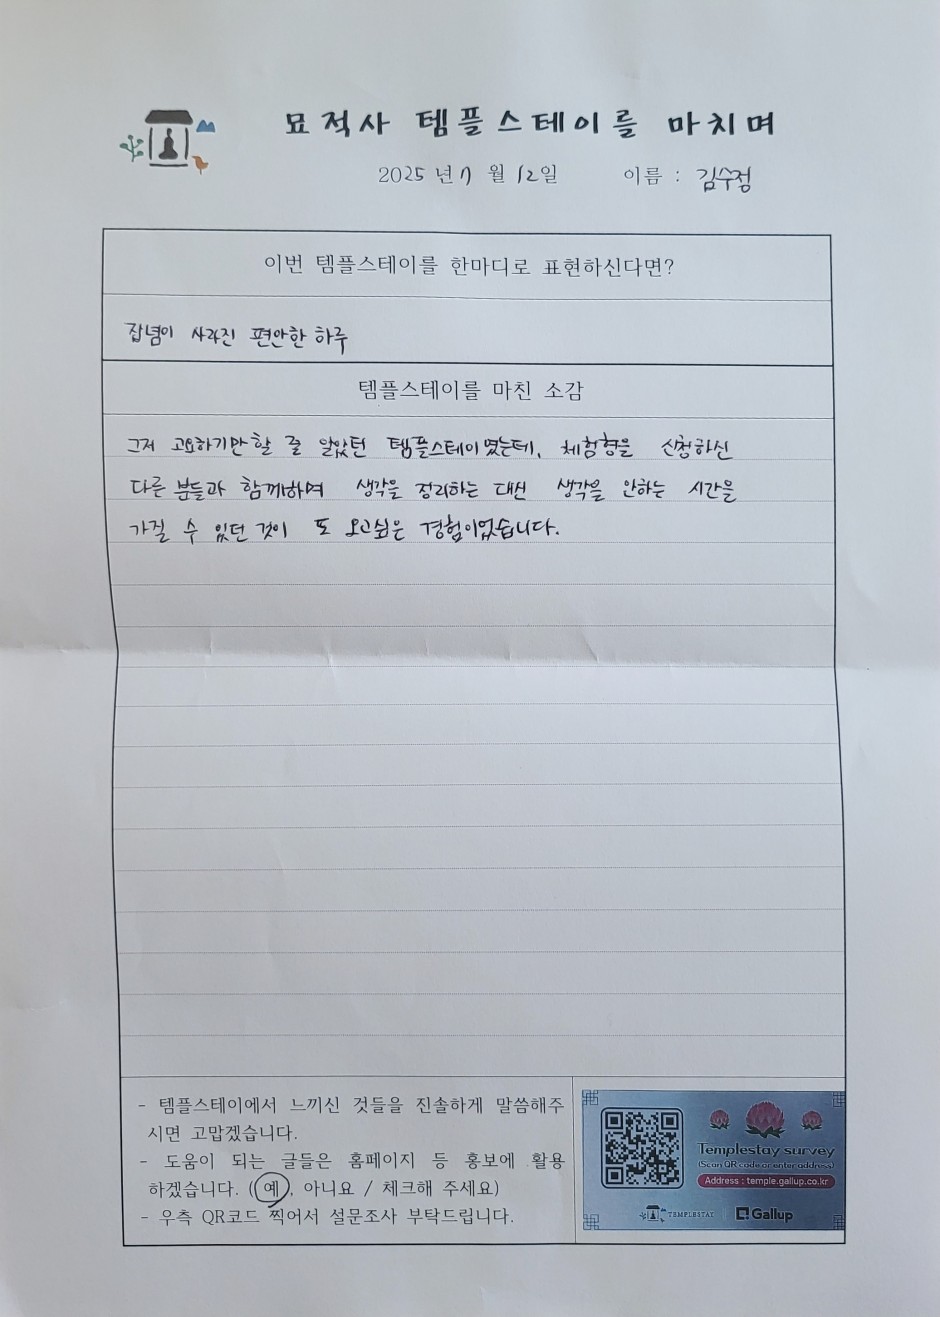 묘적사 템플스테이를 마치며
2025년 7월 12일 이름 : 김수정
이번 템플스테이를 한마디로 표현하신다면?
잡념이 사라진 편안한 하루
템플스테이를 마친 소감
그저 고요하기만 할 줄 알았던 템플스테이였는데, 체험형을 신청하신
다른 분들과 함께하며 생각을 정리하는 대신 생각을 안하는 시간을
가질 수 있던 것이 또 오고싶은 경험이었습니다.
- 템플스테이에서 느끼신 것들을 진솔하게 말씀해주
시면 고맙겠습니다.
- 도움이 되는 글들은 홈페이지 등 홍보에 활용
하겠습니다. (예, 아니요 / 체크해 주세요)
- 우측 QR코드 찍어서 설문조사 부탁드립니다.
Templestay survey
(Scan QR code or enter address)
Address : temple.gallup.co.kr
TEMPLESTAY Gallup